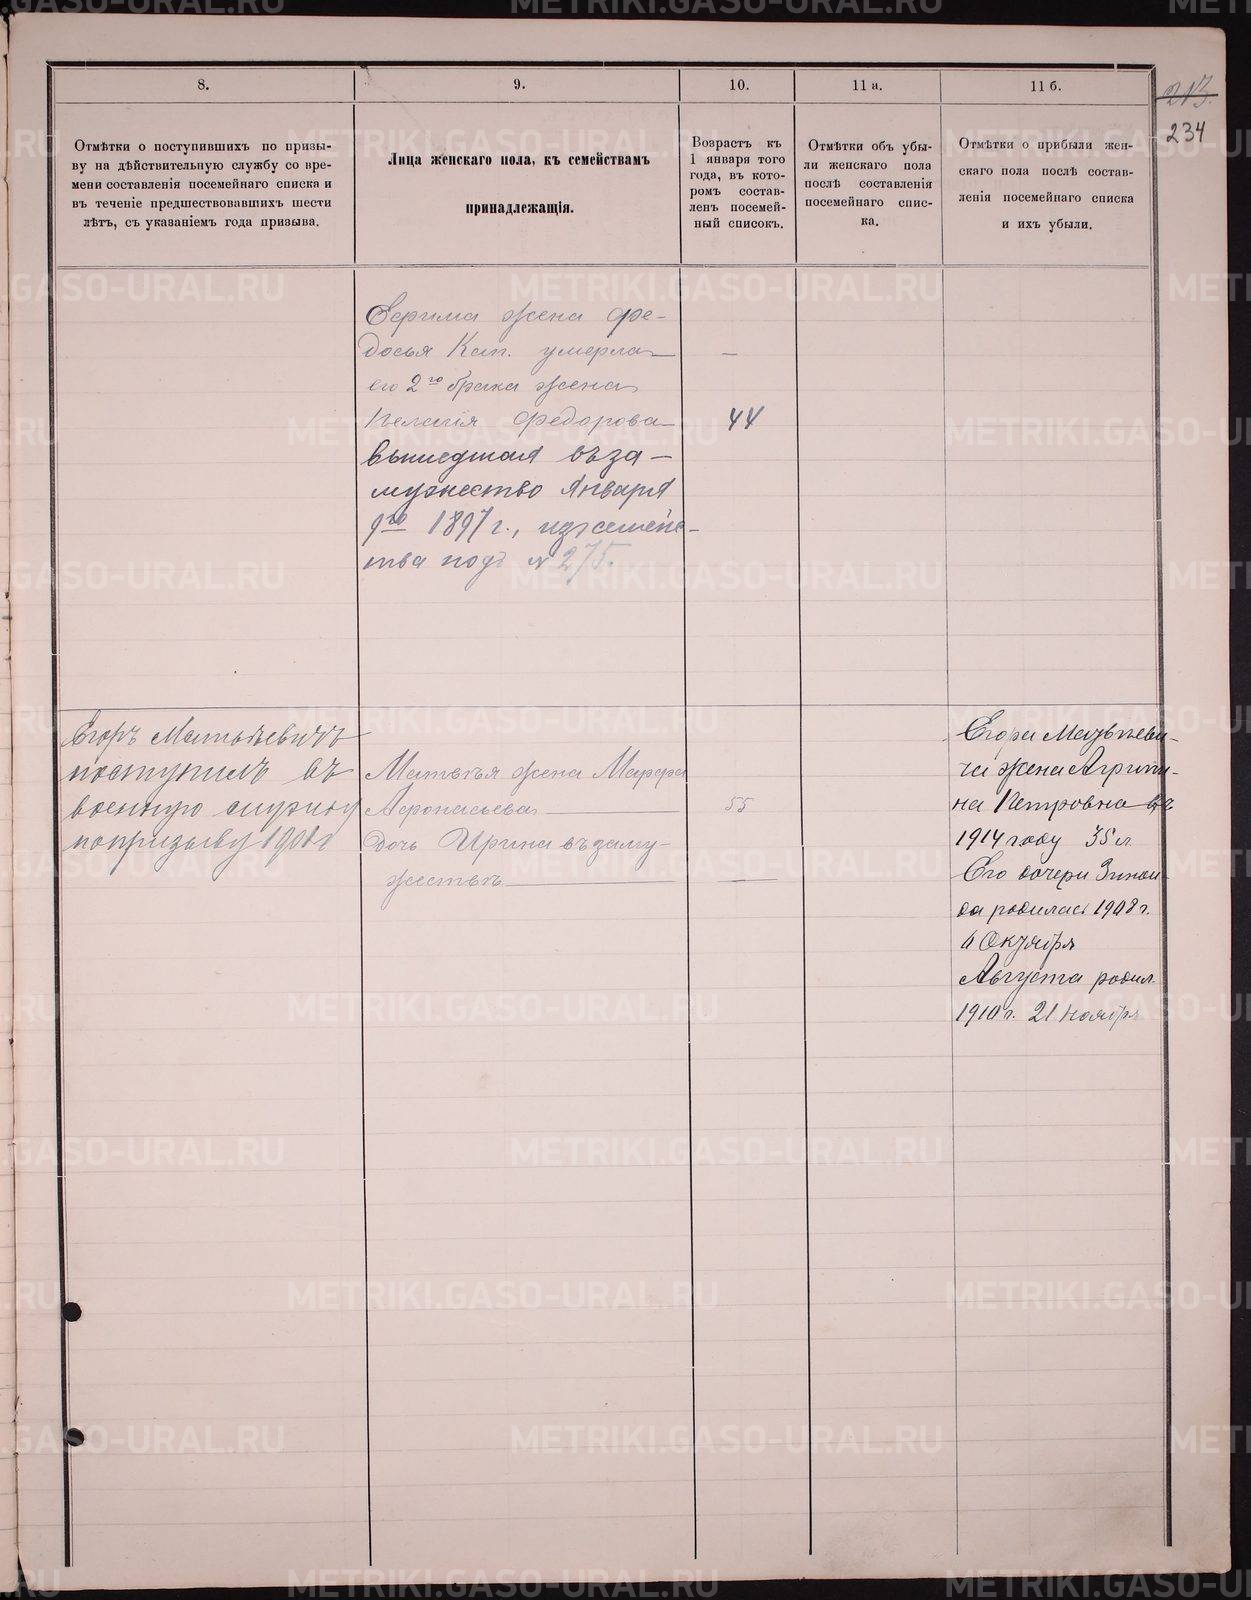 213.
234
8.
9.
10.
11 а.
11 б.
Отмѣтки о поступившихъ по призы-
ву на дѣйствительную службу со вре-
мени составленія посемейнаго списка и
въ теченіе предшествовавшихъ шести
лѣтъ, съ указаніемъ года призыва.
Лица женскаго пола, къ семействамъ
принадлежащія.
Возрастъ къ
1 января того
года, въ кото-
ромъ состав-
ленъ посемей-
ный списокъ.
Отмѣтки объ убы-
ли женскаго пола
послѣ составленія
посемейнаго спис-
ка.
Отмѣтки о прибыли жен-
скаго пола послѣ состав-
ленія посемейнаго списка
и ихъ убыли.
жена Фе-
досья Кап. умерла —
его 2го брака жена
Пелагія Федорова 44
вышедшая въ за-
мужество Января
9го 1897 г., изъ семейс-
тва подъ № 275.
Егоръ Матвѣевичъ
поступилъ въ
военную службу
по призыву 1901 г
Матвѣя жена Марфа
Афонасьева 55
дочь Ирина въ заму-
жествѣ —
Егора Матвѣеви-
ча жена Агрипи-
на Петровна въ
1914 году 35 л.
Его дочери Зинаи-
да родилась 1908 г.
Октября
Августа родил.
1910 г. 21 Ноября
METRIKI.GASO-URAL.RU